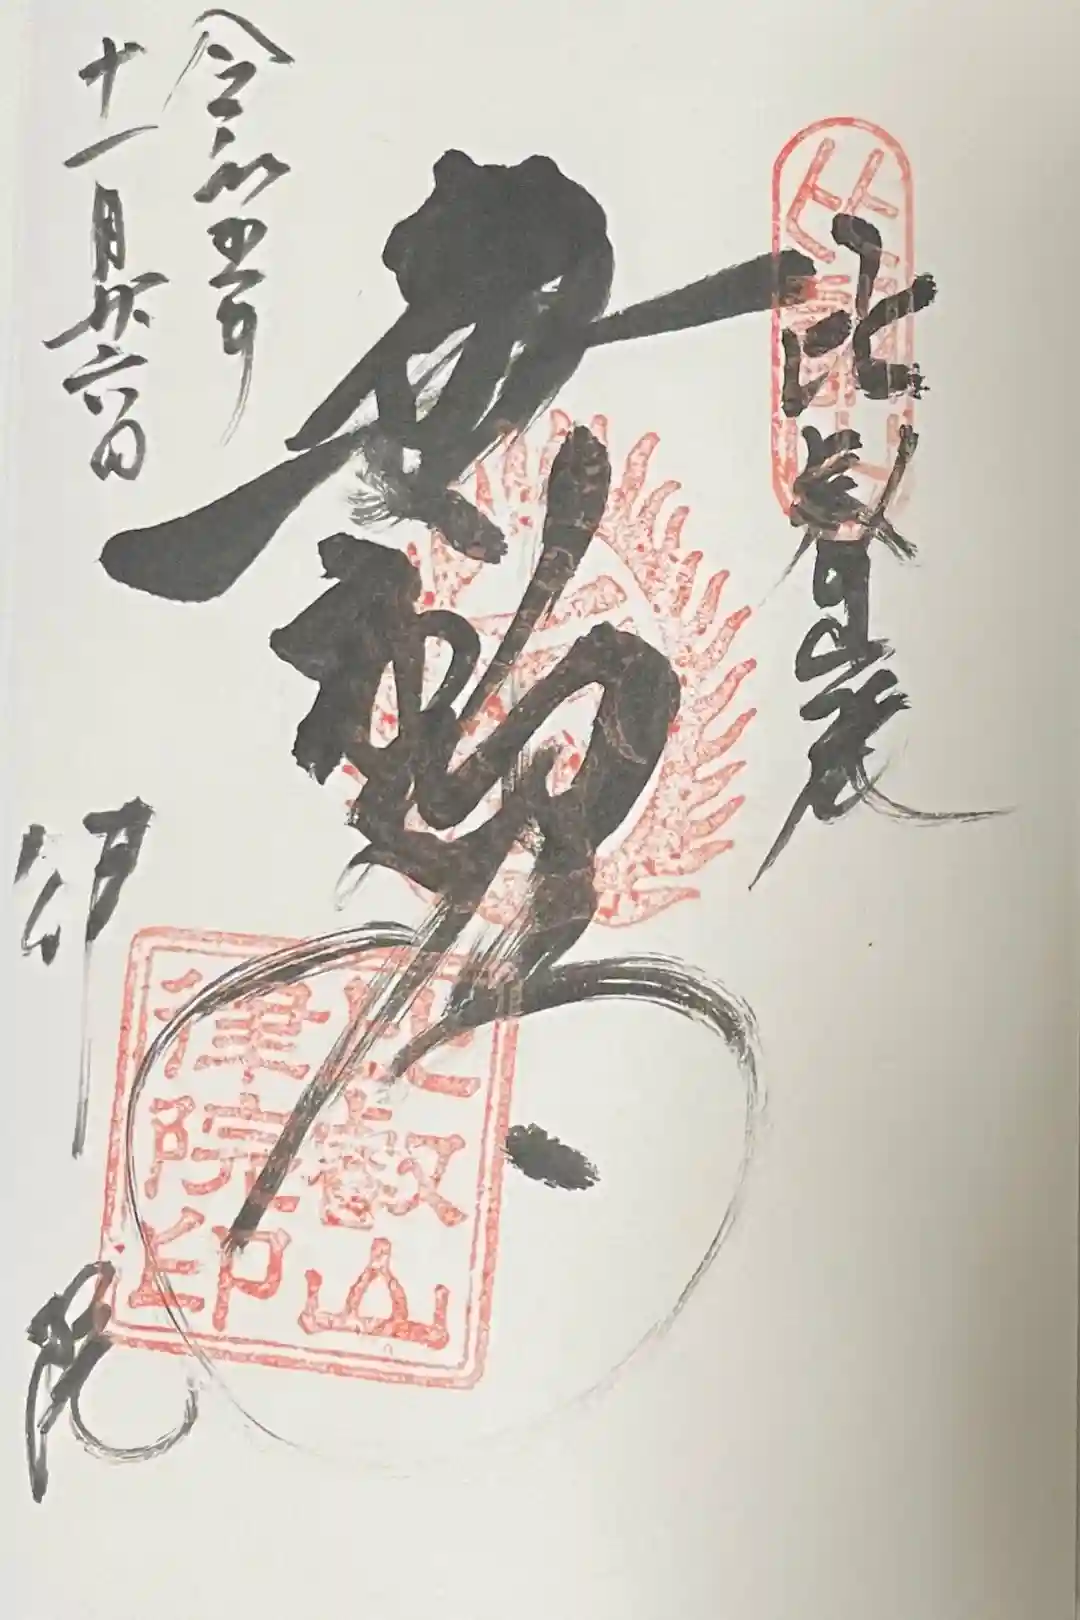 比叡山麓
動
令和五年
十一月廿六日
律院
比叡山
律院印